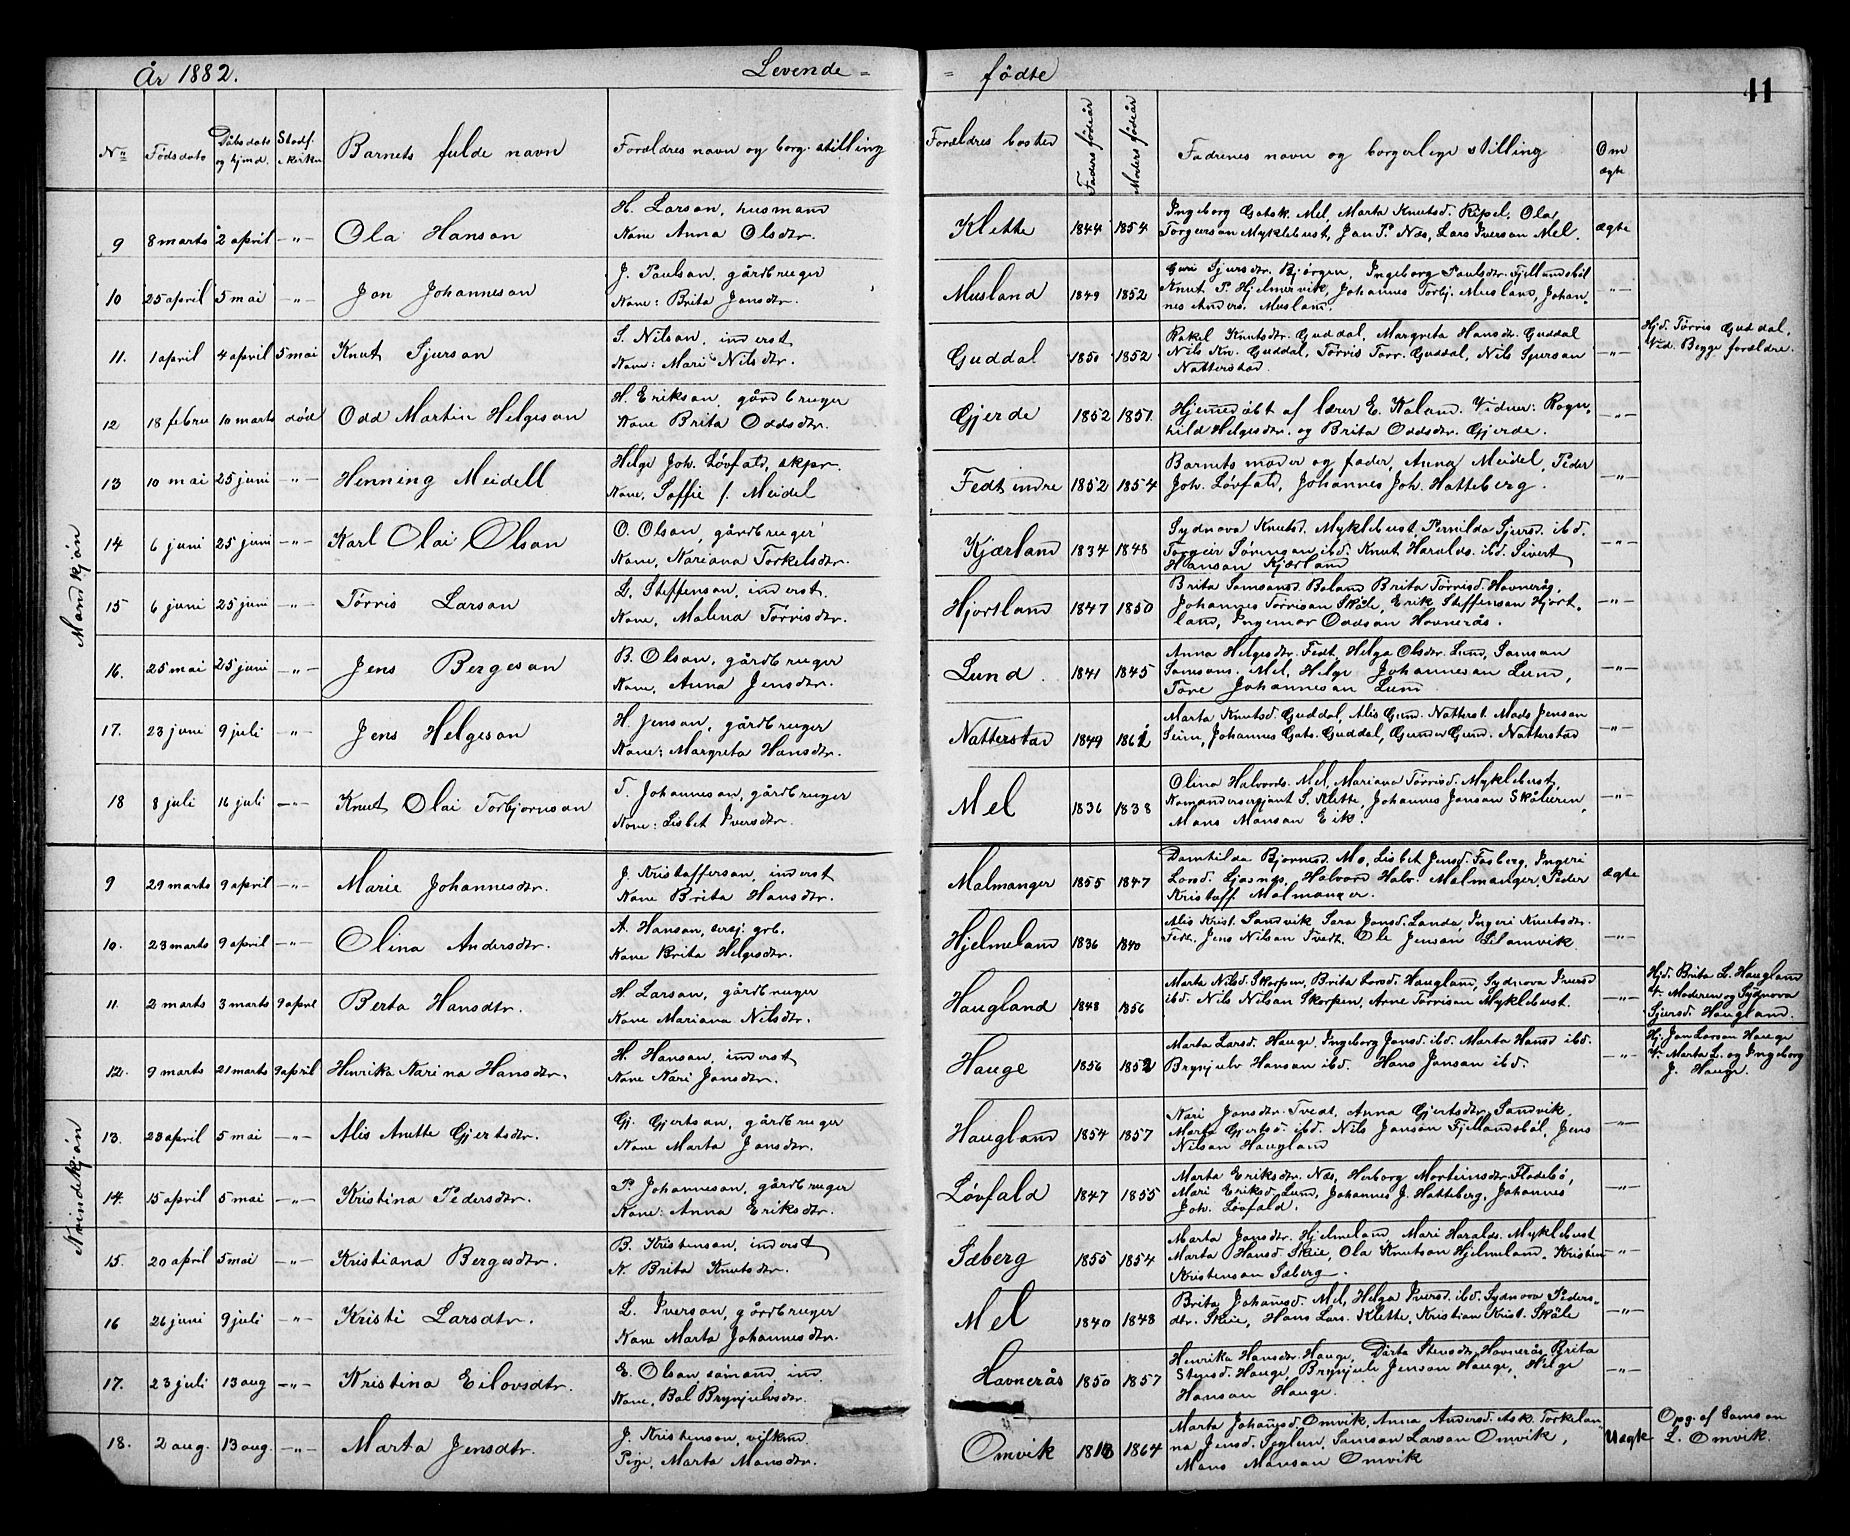 År 1882.
Levende - - fødte
41
No Fødsdato Dåbsdato og hjmd. Stadf. i kirken Barnets fulde navn Forældres navn og borg. stilling Forældres bosted Faders fødeår Moders fødeår Fadrenes navn og borgerlige stilling Om ægte
Mandkjøn
9 8 marts 2 april -"- Ola Hanson
H. Larson, husmand
Kone Anna Olsdtr.
Klette 1844 1854
Ingeborg Gotsk. Mel, Marta Knutsd. Ripel, Ola
Torgerson Myklebust, Jon P. Næs, Lars Iverson Mel.
ægte
10 25 april 5 mai -"- Jon Johanneson
J. Paulson, gårdbruger
Kone: Brita Jonsdtr.
Musland 1849 1852
Guri Sjursdtr. Bjørgen, Ingeborg Paulsdtr. Fjellandsbøl
Knut P. Hjelmervik, Johannes Torbj. Musland, Johan-
nes Anders. Musland.
-"-
11. 1 april 4 april 5 mai Knut Sjurson
S. Nilson, inderst
Kone: Mari Nilsdtr.
Guddal 1850 1852
Rakel Knutsdtr. Guddal, Margreta Hansdr. Guddal
Nils Kn. Guddal, Tørris Torr. Guddal, Nils Sjurson
Natterstad.
-"-
Hjd. Tørris Guddal.
Vid. Begge forældre.
12 18 febru 10 marts død Odd Martin Helgeson
H. Erikson, gårdbruger
Kone Brita Oddsdtr.
Gjerde 1852 1857
Hjemmedøbt af lærer E. Kaland. Vidner: Ragn-
hild Helgesdtr. og Brita Oddsdtr. Gjerde.
-"-
13 10 mai 25 juni -"- Henning Meidell
Helge Joh. Løvfald, skpr.
Kone, Soffie f. Meidel
Fedt indre 1852 1854
Barnets moder og fader, Anna Meidel, Peder
Joh. Løvfald, Johannes Joh. Hatteberg.
-"-
14 6 juni 25 juni -"- Karl Olai Olson
O. Olson, gårdbruger
Kone, Nariana Torkelsdtr.
Kjærland 1834 1848
Sydnova Knutsd. Myklebust Pernilda Sjursd. ibd.
Torgeir Søringson ibd. Knut Haralds. ibd. Sivert
Hanson Kjærland
-"-
15 6 juni 25 juni -"- Tørris Larson
L. Steffenson, inderst.
Kone, Malena Torrisdtr.
Hjortland 1847 1850
Brita Samsonsd. Boland Brita Tørrisd. Havnerås,
Johannes Torrison Skåle, Erik Steffenson Hjort-
land, Ingemar Oddson Havnerås.
-"-
16. 25 mai 25 juni -"- Jens Bergeson
B. Olson, gårdbruger
Kone, Anna Jensdtr.
Lund 1841 1845
Anna Helgesdtr. Fedt Helga Olsdtr. Lund, Samson
Samsons. Mel, Helge Johanneson Lund,
Tore Johanneson Lund
-"-
17. 23 juni 9 juli -"- Jens Helgeson
H. Jenson, gårdbruger
Kone: Margreta Hansdtr.
Natterstad 1849 1861
Marta Knutsd. Guddal, Alis Gund. Natterst. Mads Jenson
Seim, Johannes Gots. Guddal, Gunder Gund. Natterstad
-"-
18 8 juli 16 juli -"- Knut Olai Torbjornson
T. Johanneson, gårdbruger
Kone: Lisbet Iversdtr.
Mel 1836 1838
Olina Halvords. Mel, Mariana Tørrisd. Myklebust,
Komandersergjant S. Klette, Johannes Jonson Skålieren,
Mons Monson Eik.
-"-
Kvindekjøn
9 29 marts 9 april -"- Marie Johannesdtr.
J. Kristofferson, inderst
Kone Brita Hansdtr.
Malmanger 1855 1847
Domtilda Bjornesd. Mo, Lisbet Jensd. Fosberg, Ingeri
Halvord Halv. Malmanger, Peder
Kristoff. Malmanger.
ægte
10. 23 marts 9 april -"- Olina Andersdtr.
A. Hanson, sersj. grb.
Kone Brita Helgesdtr.
Hjelmeland 1836 1840
Alis Krist. Sandvik Sara Jonsd. Landa, Ingeri Knutsdtr.
Fedt. Jens Nilson Tvedt, Ole Jenson Lilomvik
-"-
11. 2 marts 3 marts 9 april Berta Hansdtr.
H. Larson, gårdbruger
Kone Mariana Nilsdtr.
Haugland 1848 1856
Marta Nilsd. Skorpen, Brita Larsd. Haugland, Sydnova Iversd
ibd. Nils Nilson Skorpen, Arne Torrison Myklebust.
-"-
Hjd. Brita L. Haugland
V. Moderen og Sydnova
Sjursd. Haugland.
12. 9 marts 21 marts 9 april Henrika Karina Hansdtr.
H. Hanson, inderst
Kone Kari Jonsdtr.
Hauge 1856 1852
Marta Larsd. Hauge, Ingeborg Jonsd. ibd. Marta Hansd ibd.
Brynjulv Hanson ibd. Hans Jonson ibd.
-"-
Hj. Jon Larson Hauge
V. Marta L. og Ingeborg
J. Hauge.
13. 23 april 5 mai -"- Alis Anette Gjertsdtr.
Gj. Gjertson, gårdbruger
Kone Marta Jonsdtr.
Haugland 1854 1857
Kari Jonsdtr. Tvedt, Anna Gjertsdtr. Sandvik,
Marta Gjertsd. ibd. Nils Jonson Fjellandsbøl, Jens
Nilson Haugland
-"-
14. 15 april 5 mai -"- Kristina Pedersdtr.
P. Johanneson, gårdbruger
Kone: Anna Eriksdtr.
Løvfald 1847 1855
Marta Eriksdtr. Næs, Herborg Mortensdtr. Flodebø,
Mari Eriksd. Lund, Johannes J. Hatteberg, Johannes
Joh. Løvfald.
-"-
15. 20 april 5 mai -"- Kristiana Bergesdtr.
B. Kristenson, inderst
K. Brita Knutsdtr.
Sæberg 1855 1854
Marta Jonsdtr. Hjelmeland, Mari Haralds. Myklebust
Marta Hansd. Skeie, Ola Knutson Hjelmeland. Kristen
Kristenson Sæberg.
-"-
16 26 juni 9 juli -"- Kristi Larsdtr.
L. Iverson, gårdbruger
Kone Marta Johannesdtr.
Mel 1840 1848
Brita Johannsd. Mel, Helga Iversd. ibd. Sydnova Peders-
dtr. Skeie, Hans Lars. Klette, Kristian Krist. Skåle
-"-
17. 23 juli 13 aug -"- Kristina Eilovsdtr.
E. Olson sømand, ind.
Kone, Bol Brynjulvsdtr.
Havnerås 1850 1857
Henrika Hansdtr. Hauge, Dårta Stensdtr. Havnerås, Brita
Stensd. Hauge, Brynjulv Jenson Hauge, Helge
Hanson Hauge.
-"-
18. 2 aug. 13 aug. -"- Marta Jensdtr.
J. Kristenson,
Pige, Marta Monsdtr.
Omvik 1864
Marta Johannsd. Omvik, Anna Andersd. Ask Torkelan-
na Jensd. Samson Larson Omvik,
Mons Monson Omvik
Uægte
Opg. af Samson
L. Omvik.